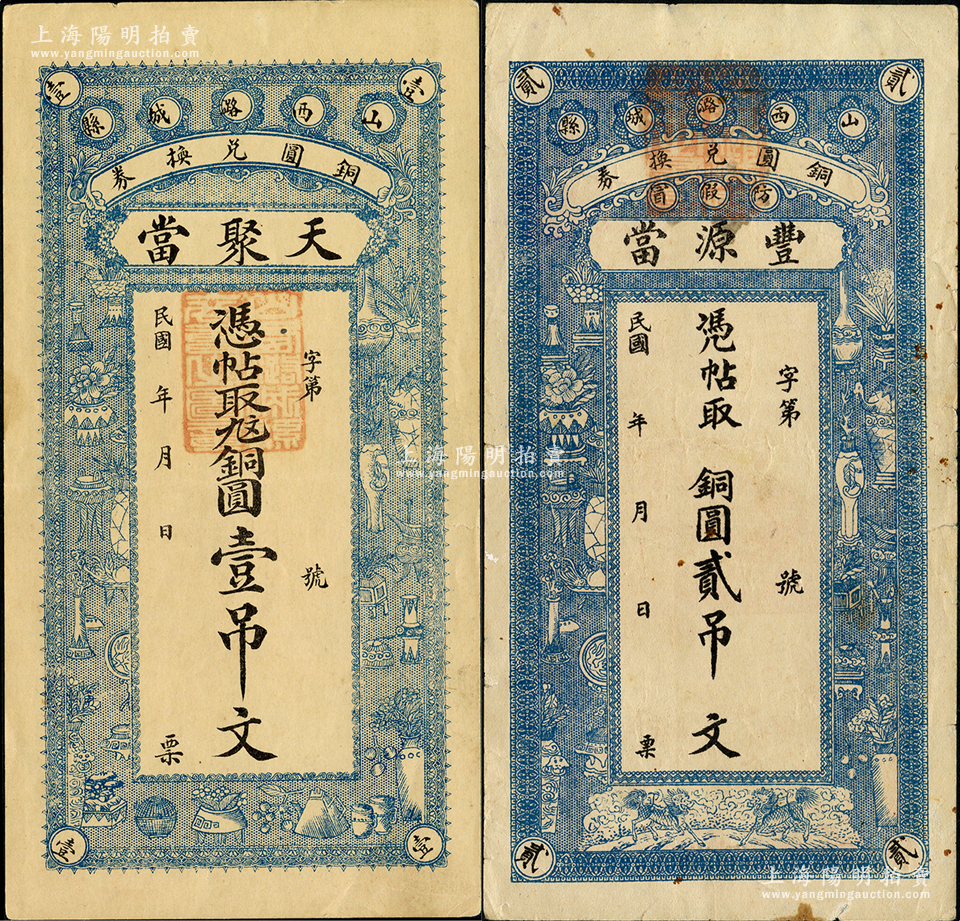 上海陽明拍賣
www.yangmingauction.com
壹 壹
山西潞城縣
銅圓兌換券
天聚當
字第 號
憑帖取九五銅圓壹吊文
民國 年 月 日 票
壹 壹
貳 貳
山西潞城縣
銅圓兌換券
防假冒
豐源當
字第 號
凴帖取 銅圓貳吊文
民國 年 月 日 票
貳 貳
上海陽明拍賣
www.yangmingauction.com
上海陽明拍賣
www.yangmingauction.com